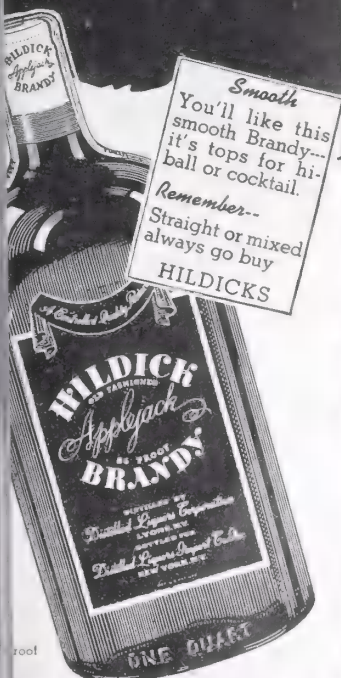 HILDICK
Applejack
BRANDY
Smooth
You'll like this
smooth Brandy---
it's tops for hi-
ball or cocktail.
Remember--
Straight or mixed
always go buy
HILDICKS
A Controlled Quality
HILDICK
OLD FASHIONED
Applejack
PROOF
BRANDY
DISTILLED BY
Distilled Liquors Corporation
LYONS, N.Y.
BOTTLED FOR
Distilled Liquors
NEW YORK, N.Y.
ONE QUART
roof